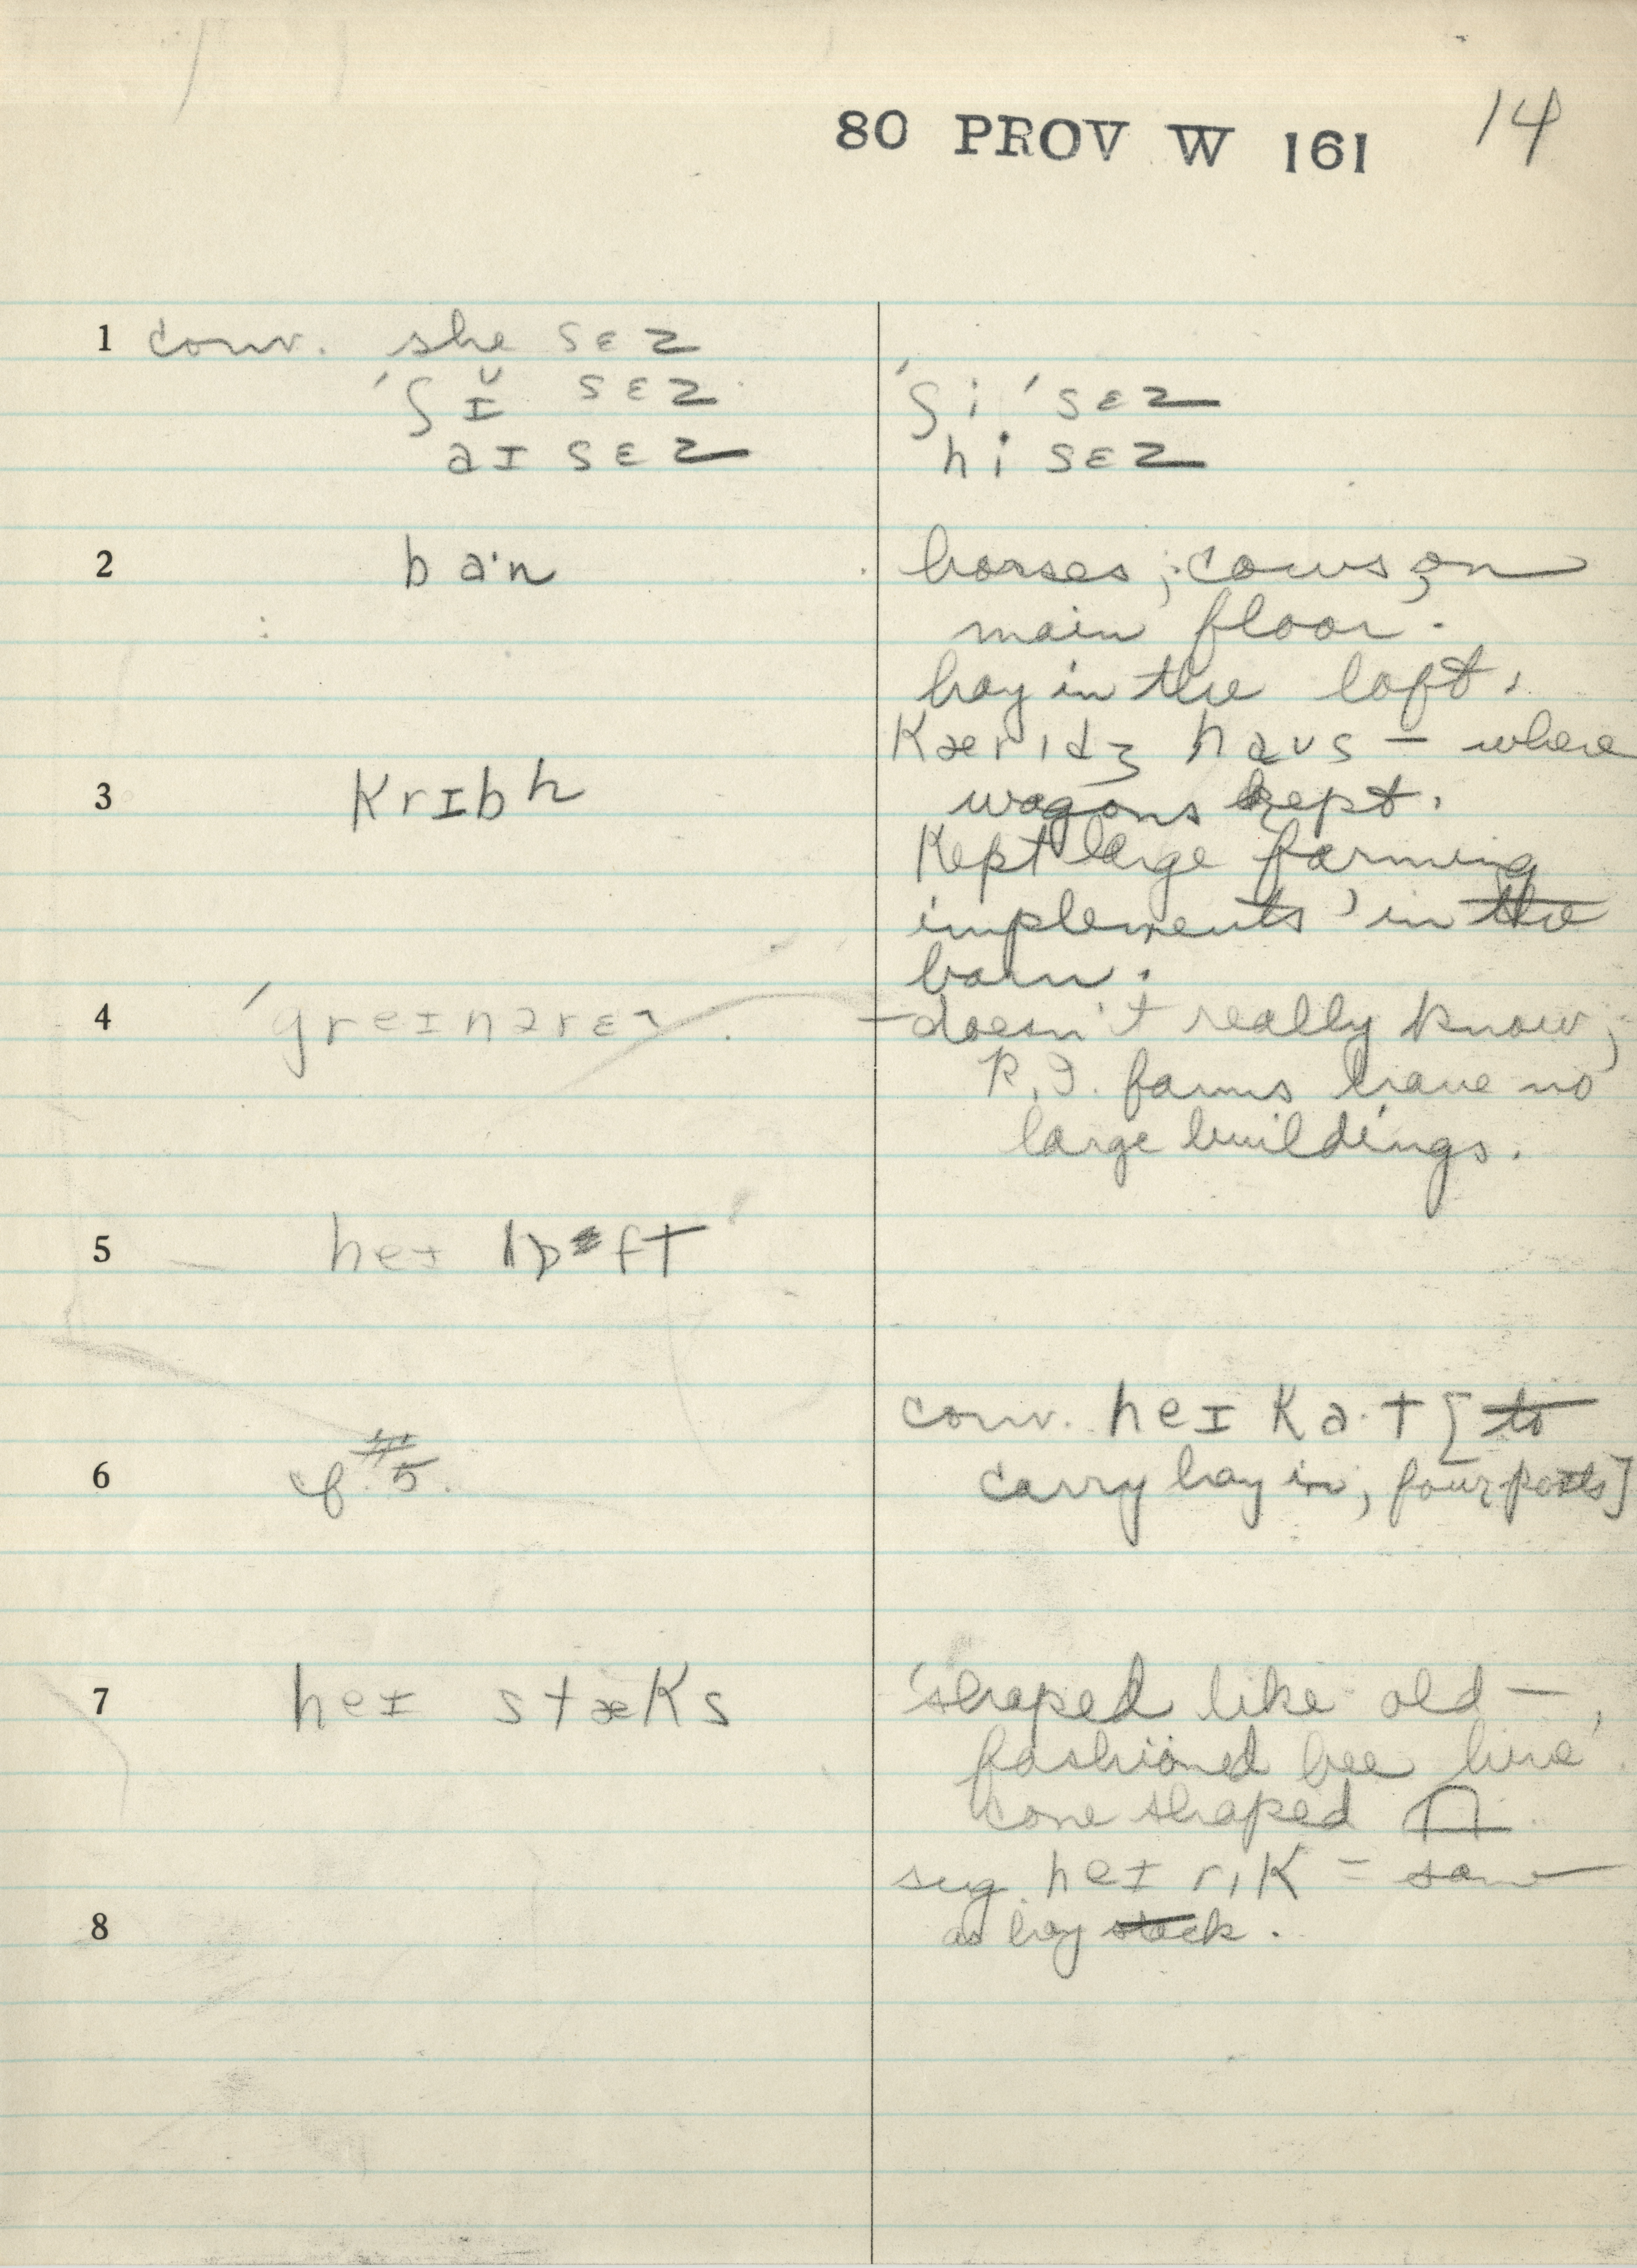 80 PROV W 161 14
1 conv. she sɛz
'ʃɪ̆ sɛz 'ʃi 'sɛz
aɪ sɛz hi sɛz
2 ba·n horses; cows on
main floor.
hay in the loft.
kærɪdʒ haʊs – where
3 krɪbʰ wagons kept.
Kept large farming
implements in the
barn.
4 'greɪnərɛ – doesn't really know;
R.I. farms have no
large buildings.
5 heɪ lɒft
conv. heɪ ka·t [to
6 cf. #5. carry hay in, four posts]
7 heɪ stæks 'shaped like old-
fashioned bee hive'.
cone shaped
sug. heɪ rɪk = same
8 as hay stack.